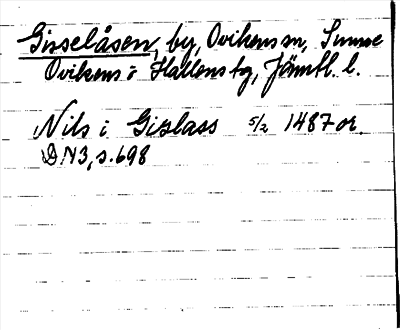 Gisselåsen, by, Ovikens sn, Sunne
Ovikens o Hallens tg, Jämtl. l.
Nils i Gislass 5/2 1487 or.
DN 3, s. 698